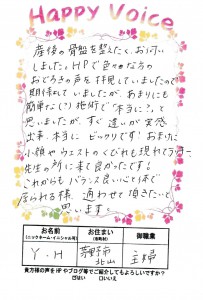 HAPPY VOICE
産後の骨盤を整えたく、お伺い
しました。HPで色々な方の
おどろきの声を拝見していましたので
期待していましたが、あまりにも
簡単な(?)施術で「本当に?」と
思いましたが、すぐ違いが実感
出来、本当に ビックリです!おまけに
小顔やウエストのくびれも現れてラッキー
先生の所に来て良かったです!
これからもバランス良い心と体で
居られる様、通わせて頂きたいと
思います。
お名前
(ニックネーム・イニシャル可)
お住まい
(市町村)
御職業
Y・H
茅野市
北山
主婦
貴方様の声をHPやブログ等でご紹介してもよろしいですか?
はい
□いいえ